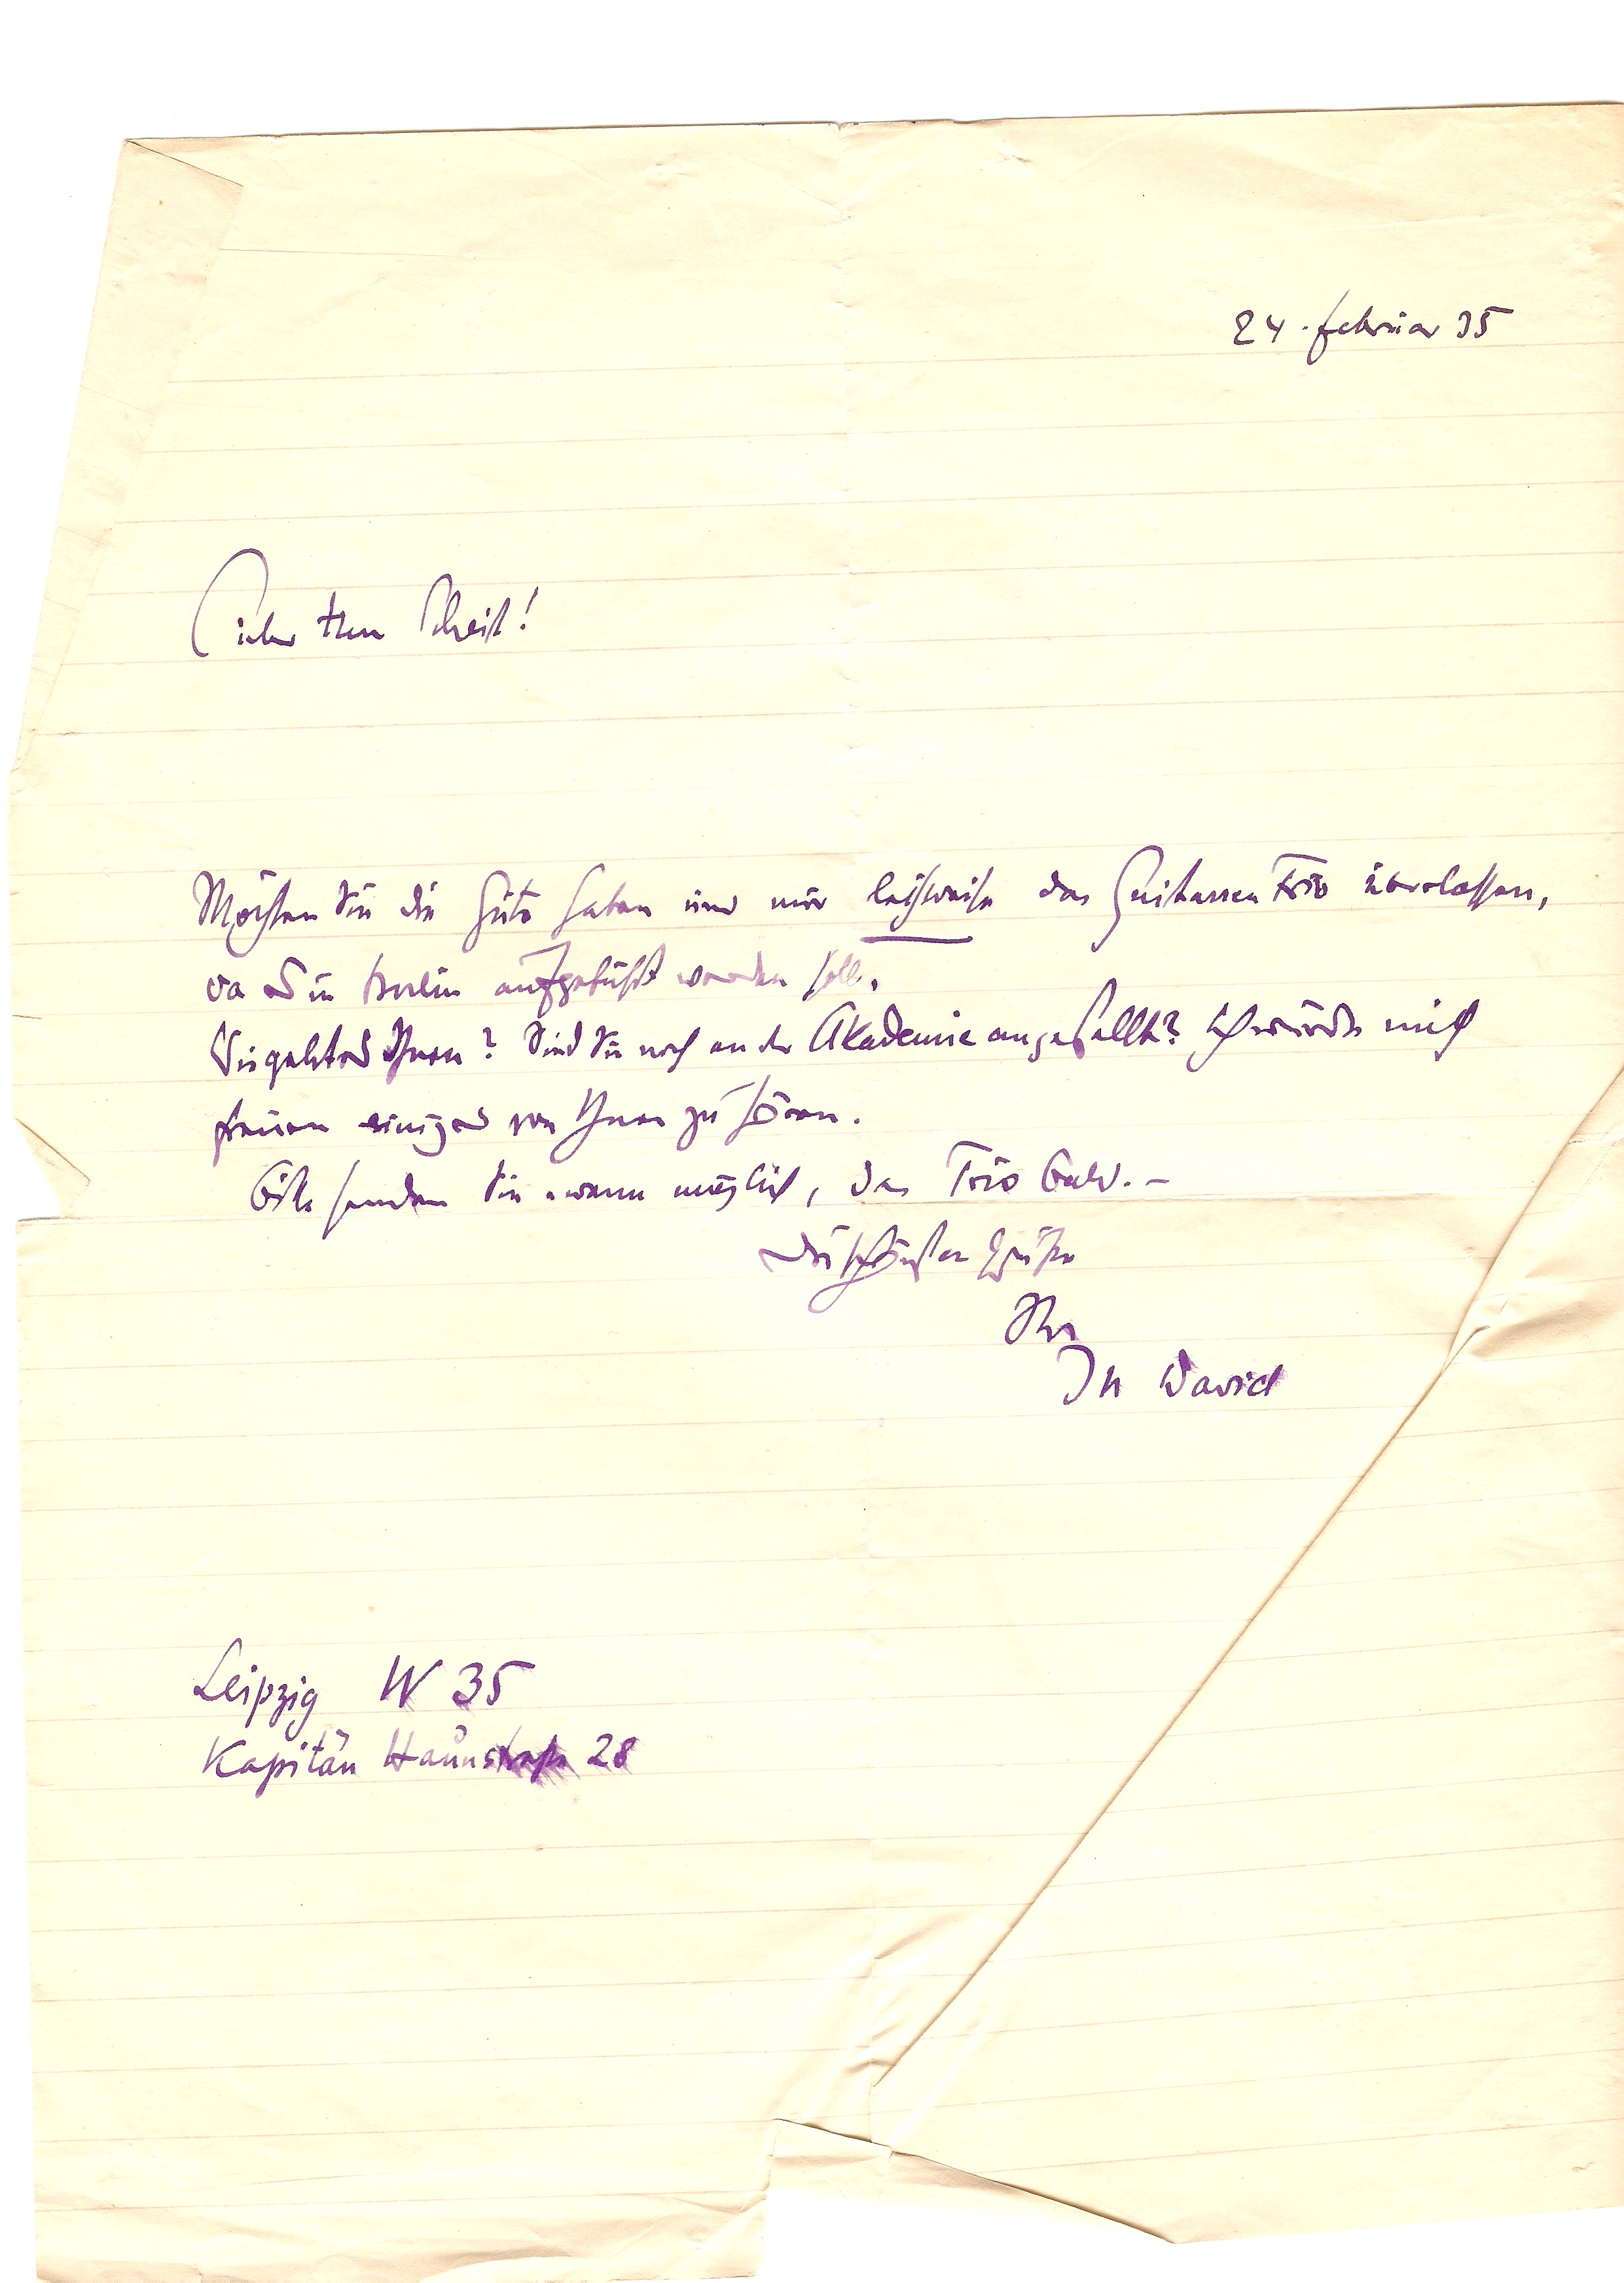 24. Februar 35
Lieber Herr Scheit!
Möchten Sie die Güte haben und mir leihweise das Guitarren Trio überlassen,
da es in Berlin aufgeführt werden soll.
Wie geht es Ihnen? Sind Sie noch an der Akademie angestellt? Ich würde mich
freuen einiges von Ihnen zu hören.
Bitte senden Sie, wenn möglich, das Trio bald. –
Die schönsten Grüße
Ihr
Jn David
Leipzig W 35
Kapitän Haunstraße 28